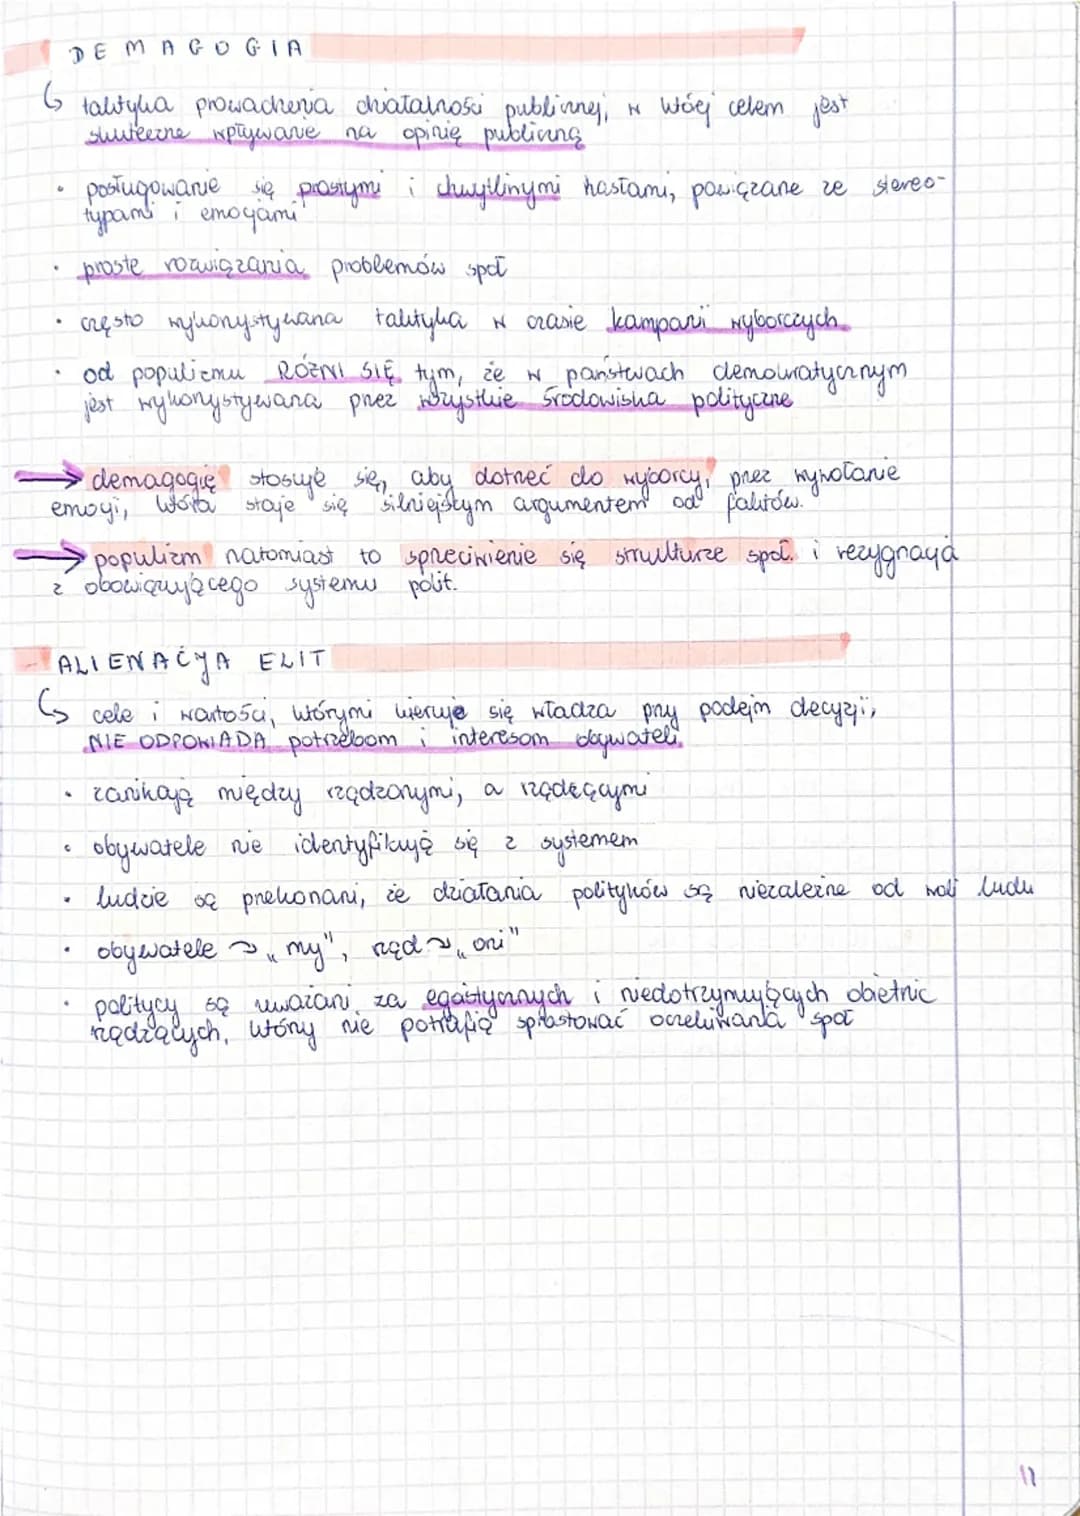 DEMAGOGIA
↳ taktyka prowadzenia działalności publicznej, w której celem jest
skuteczne wpływanie na opinię publiczną
• posługowanie się prostymi i chwytlinymi hasłami, powiązane ze stereo-
typami i emocjami
• proste rozwiązania problemów społ
• często wykorzystywana taktyka w czasie kampanii wyborczych
• od populizmu RÓŻNI SIĘ tym, że w państwach demokratycznym
jest wykorzystywana przez wszystkie środowiska polityczne
→ demagogię stosuje się, aby dotrzeć do wyborcy, przez wywołanie
emocji, która staje się silniejszym argumentem od faktów.
→ populizm natomiast to sprzeciwienie się strukturze społ. i rezygnacja
z obowiązującego systemu polit.
ALIENACJA ELIT
↳ cele i wartości, którymi kieruje się władza przy podejm decyzji,
NIE ODPOWIADA potrzebom i interesom obywateli.
• zanikają między rządzonymi, a rządzącymi
• obywatele nie identyfikują się z systemem
• ludzie są przekonani, że działania polityków są niezależne od woli ludu
• obywatele → „my", rząd → „oni"
• politycy są uważani za egoistycznych i niedotrzymujących obietnic
rządzących, którzy nie potrafią sprostować oczekiwania społ
11